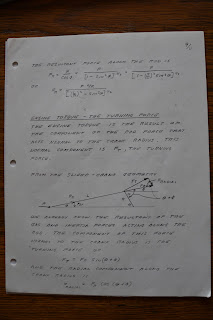 THE RESULTANT FORCE ALONG THE ROD IS
OR
ENGINE TORQUE - THE TURNING FORCE
THE ENGINE TORQUE IS THE RESULT OF
THE COMPONENT OF THE ROD FORCE THAT
ACTS NORMAL TO THE CRANK RADIUS. THIS
NORMAL COMPONENT IS PN, THE TURNING
FORCE.
FROM THE SLIDER-CRANK GEOMETRY
WE ALREADY KNOW THE RESULTANT OF THE
GAS AND INERTIA FORCES ACTING ALONG THE
ROD. THE COMPONENT OF THIS FORCE
NORMAL TO THE CRANK RADIUS IS THE
TURNING FORCE OR
SIN(θ+β)
AND THE RADIAL COMPONENT ALONG THE
CRANK RADIUS IS
COS (θ+β)